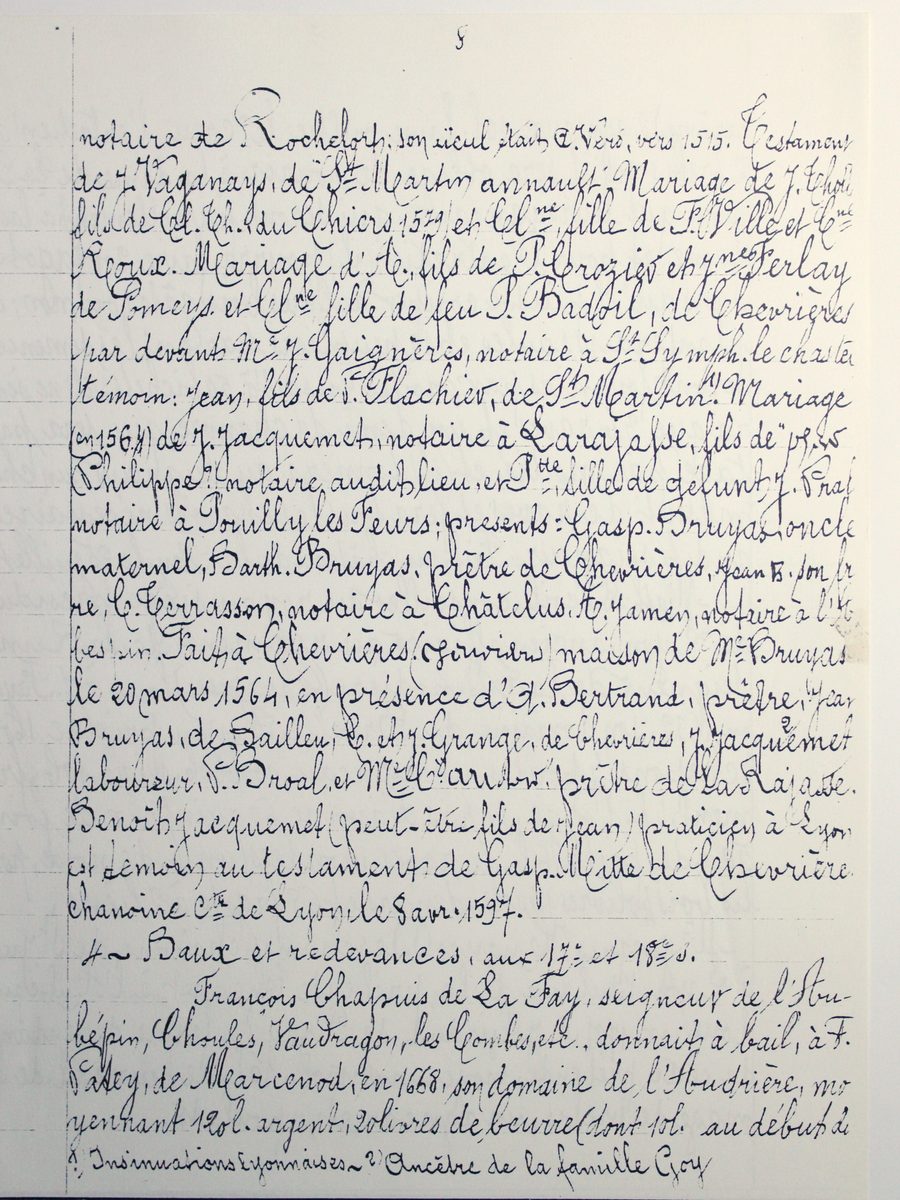 8
notaire de Rochefort; son aïeul était A. Véro, vers 1515. Testament
de J. Vaganays, de St Martin annault. Mariage de J. Thol
fils de Cl. Th. du Thiers 1579) et Clne, fille de F. Ville et Cne
Roux. Mariage d'A., fils de P. Crozier et Jne Ferlay
de Pomeys. et Clne fille de feu P. Badoil, de Chevrières
par devant Me J. Gaignères, notaire à St Symph. le chastel
témoin: Jean, fils de P. Flachier, de St Martin.(1) Mariage
(en 1564) de J. Jacquemet, notaire à Larajasse, fils de
Philippe, notaire audit lieu, et Ptte, fille de défunt J. Pra
notaire à Pouilly les Feurs; présents: Gasp. Bruyas, oncle
maternel, Barth. Bruyas, prêtre de Chevrières, Jean B. son fr
re, C. Terrasson, notaire à Châtelus, A. Jamen, notaire à l'A
bespin. Fait à Chevrières, maison de Me Bruyas
le 20 mars 1564, en présence d'A. Bertrand, prêtre, Jean
Bruyas, de Sailleu, C. et J. Grange, de Chevrières, J. Jacquemet 2
laboureur, P. Broal, et prêtre de La Rajasse.
Benoît Jacquemet (peut-être fils de Jean) praticien à Lyon
est témoin au testament de Gasp. Mitte de Chevrières
chanoine Cte de Lyon, le 8 avr. 1597.
4~ Baux et redevances, aux 17e et 18e s.
François Chapuis de La Fay, seigneur de l'Au-
bépin, Choules, Vaudragon, les Combes, etc., donnait à bail, à F.
Patey, de Marcenod, en 1668, son domaine de l'Audrière, mo
yennant 120l. argent, 20 livres de beurre (dont 10l. au début de
1) Insinuations Lyonnaises ~ 2) Ancêtre de la famille Goy